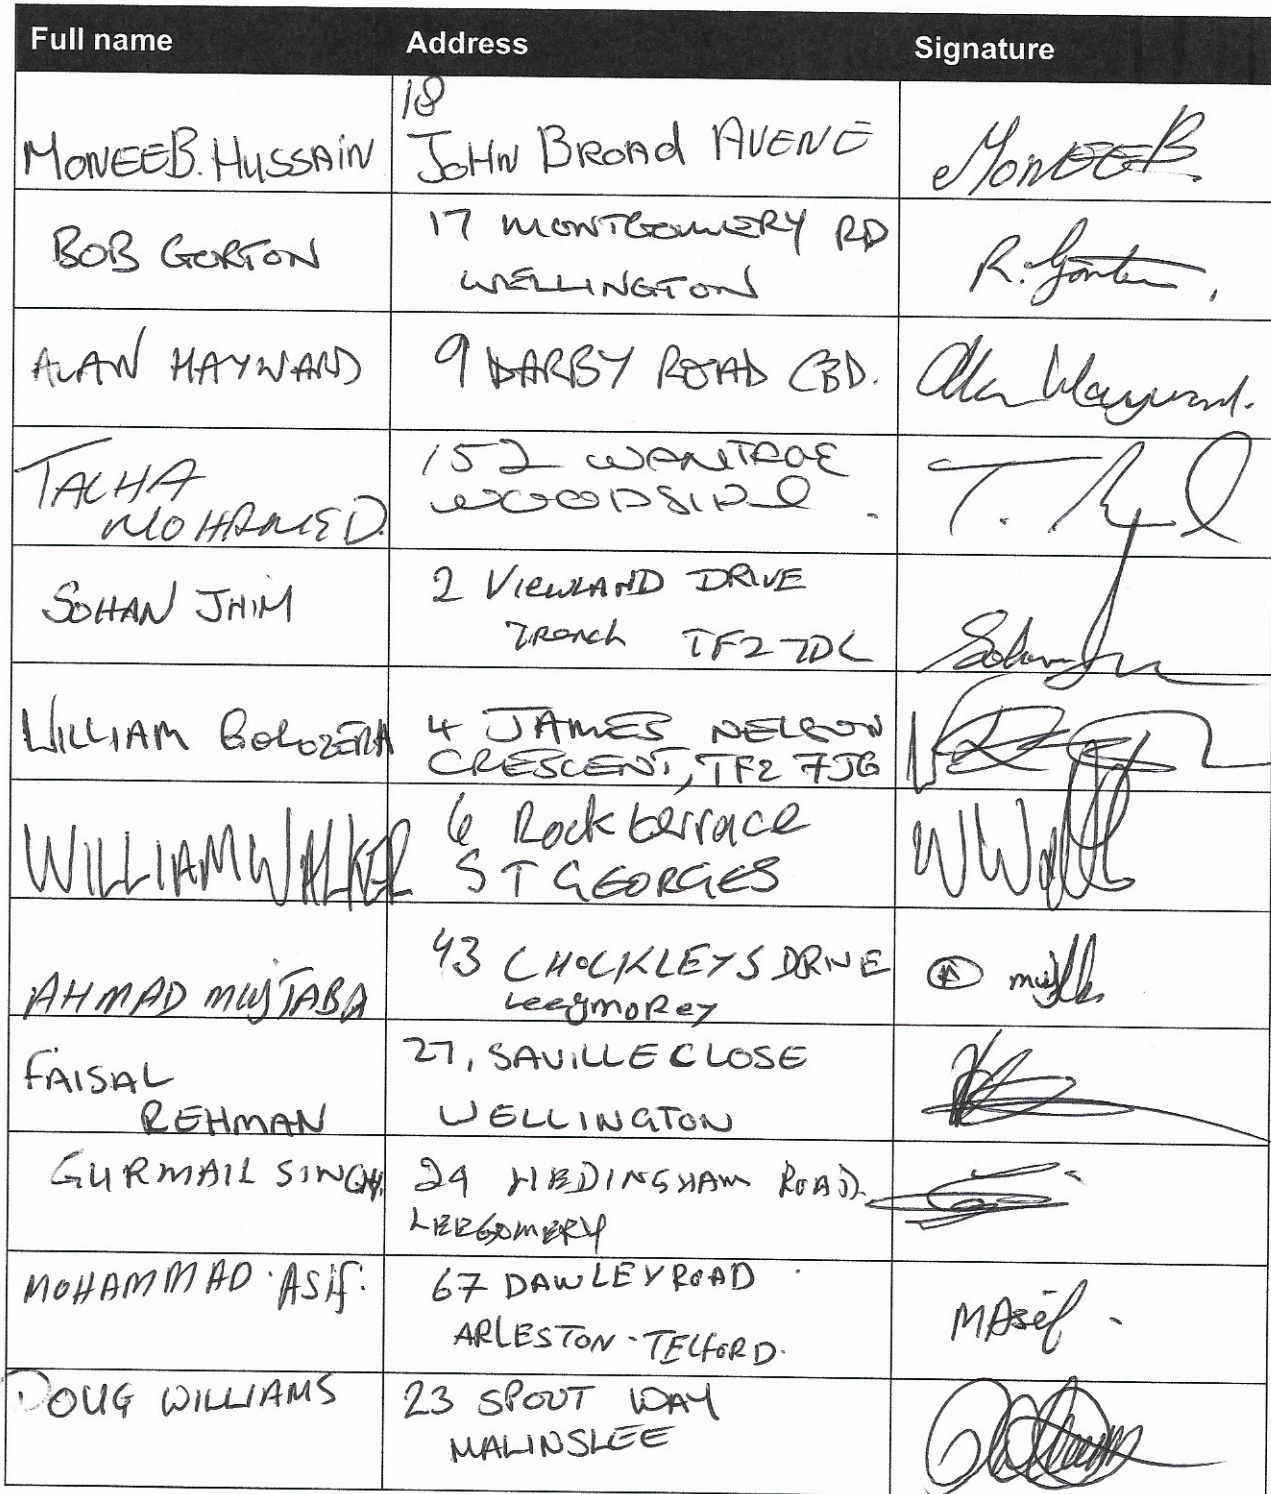 Full name Address Signature
18
MONEEB. HUSSAIN JOHN BROAD AVENE MONEEB.
BOB GORTON 17 MONTGOMERY RD R. Gorton.
WELLINGTON
ALAN HAYWARD 9 DARBY ROAD CBD. Alan Hayward.
TALHA 152 WANTAGE T.
MOHAMED. WOODSIDE.
SOHAN JHIM 2 VIEWLAND DRIVE
Trench TF2 7DL Sohan
WILLIAM 4 JAMES NELSON
CRESCENT, TF2 7JG
WILLIAM WALKER 6 Rock terrace W Walker
ST GEORGES
AHMAD MUJTABA 43 CHOCKLEYS DRIVE A
Leegmorey
FAISAL 27, SAVILLE CLOSE
REHMAN WELLINGTON
GURMAIL SINGH. 24 HEDINGSHAM ROAD.
LEEGOMERY
MOHAMMAD. ASIF. 67 DAWLEY ROAD
ARLESTON - TELFORD. MAsif.
DOUG WILLIAMS 23 SPOUT WAY
MALINSLEE